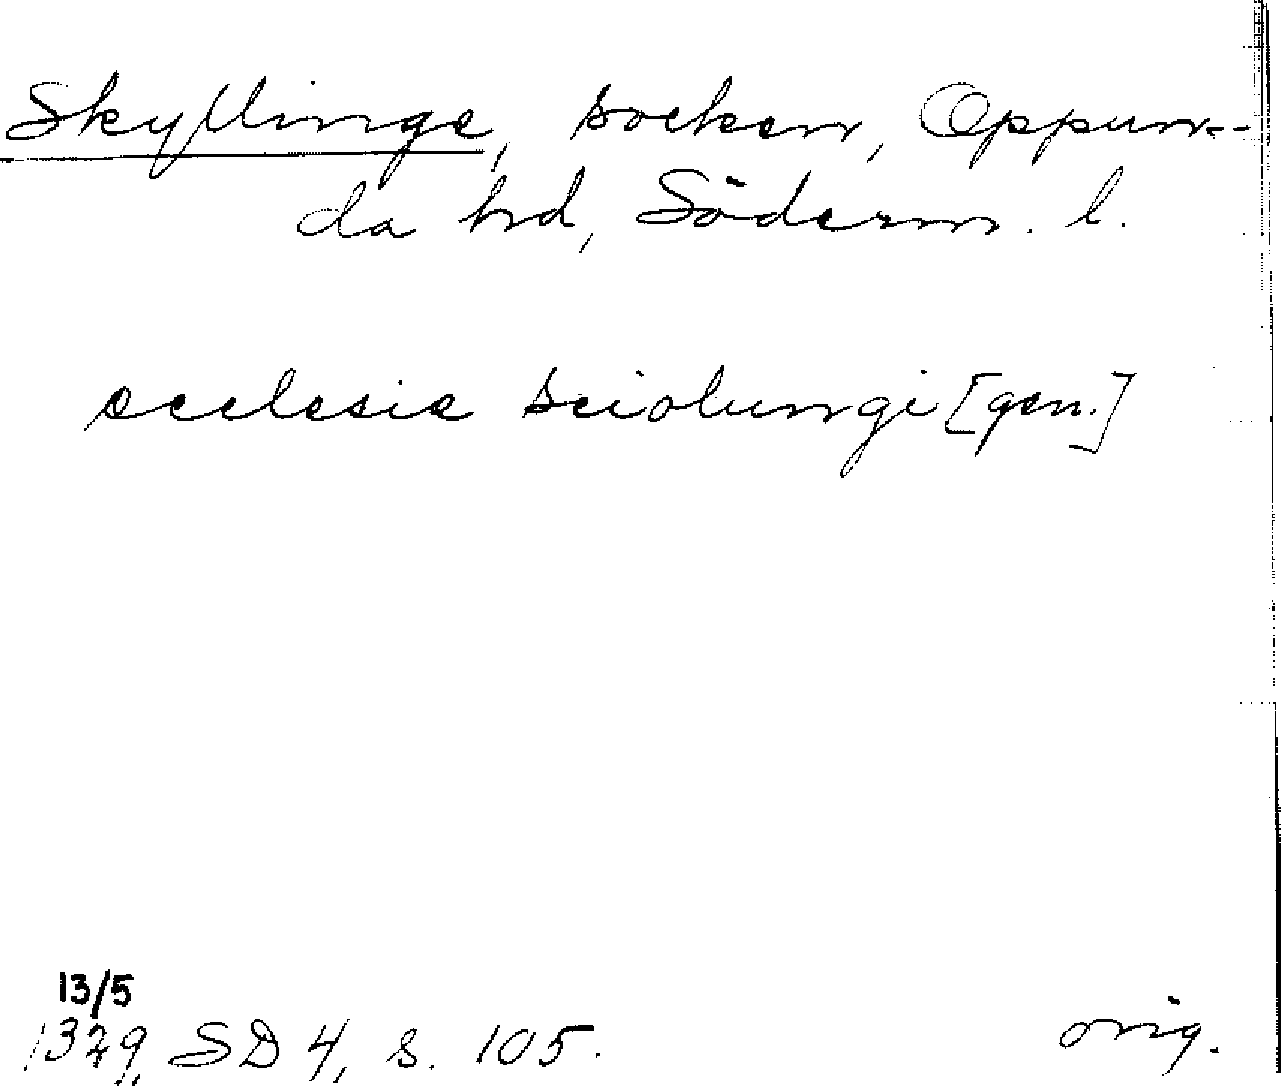 Skyllinge, socken, Oppun-
da hd, Söderm. l.
ecclesie sciolungi [gen.]
13/5
1329, SD 4, s. 105.
orig.